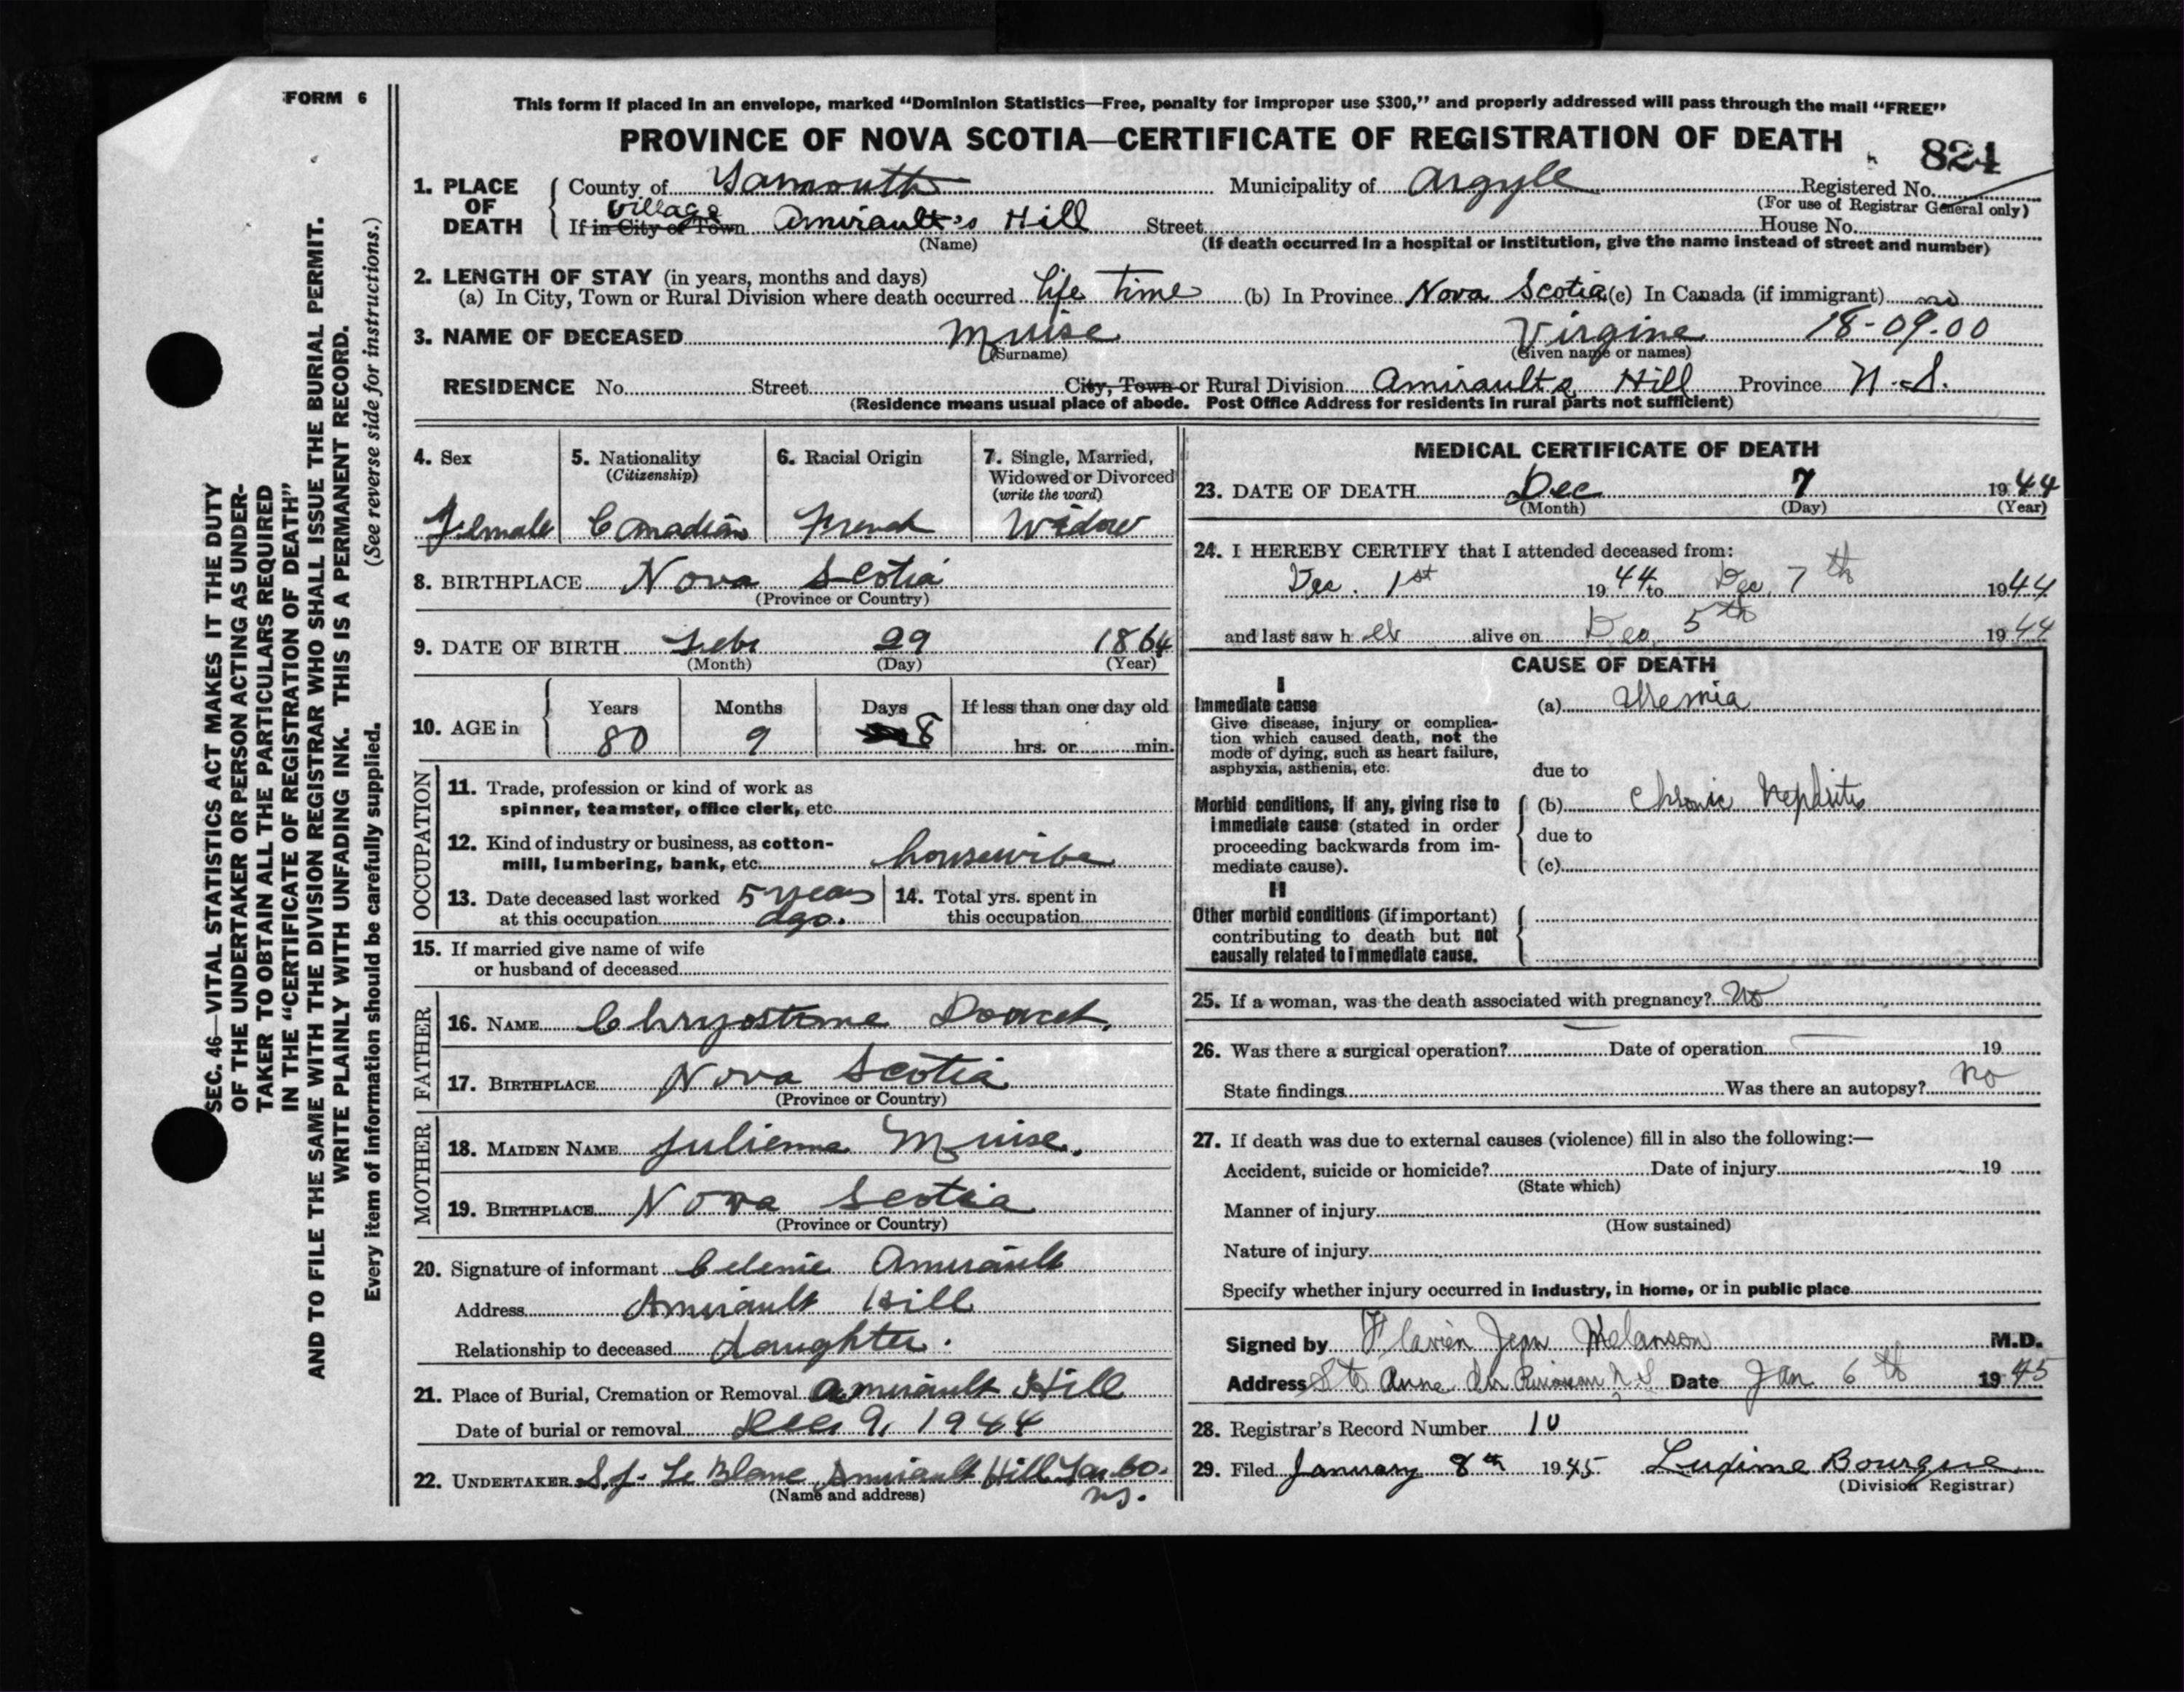 FORM 6
This form if placed in an envelope, marked “Dominion Statistics—Free, penalty for improper use $300,” and properly addressed will pass through the mail “FREE”
PROVINCE OF NOVA SCOTIA—CERTIFICATE OF REGISTRATION OF DEATH
824
1. PLACE OF DEATH
County of Yarmouth Municipality of Argyle Registered No.
(For use of Registrar General only)
village
If in City or Town Amirault's Hill Street House No.
(Name) (If death occurred in a hospital or institution, give the name instead of street and number)
2. LENGTH OF STAY (in years, months and days)
(a) In City, Town or Rural Division where death occurred life time (b) In Province Nova Scotia (c) In Canada (if immigrant) no
3. NAME OF DECEASED Muise Virgine 18-09-00
(Surname) (Given name or names)
RESIDENCE No. Street City, Town or Rural Division Amiraults Hill Province N.S.
(Residence means usual place of abode. Post Office Address for residents in rural parts not sufficient)
4. Sex
Female
5. Nationality
(Citizenship)
Canadian
6. Racial Origin
French
7. Single, Married,
Widowed or Divorced
(write the word)
Widow
8. BIRTHPLACE Nova Scotia
(Province or Country)
9. DATE OF BIRTH Feb 29 1864
(Month) (Day) (Year)
10. AGE in
Years Months Days If less than one day old
80 9 8 hrs. or min.
OCCUPATION
11. Trade, profession or kind of work as
spinner, teamster, office clerk, etc.
12. Kind of industry or business, as cotton-
mill, lumbering, bank, etc. housewife
13. Date deceased last worked 5 years
at this occupation ago.
14. Total yrs. spent in
this occupation
15. If married give name of wife
or husband of deceased
FATHER
16. NAME Chrysostome Doucet.
17. BIRTHPLACE Nova Scotia
(Province or Country)
MOTHER
18. MAIDEN NAME Julienne Muise.
19. BIRTHPLACE Nova Scotia
(Province or Country)
20. Signature of informant Celenie Amirault
Address Amirault Hill
Relationship to deceased daughter.
21. Place of Burial, Cremation or Removal Amirault Hill
Date of burial or removal Dec 9, 1944
22. UNDERTAKER S.J. Le Blanc Amirault Hill Yar Co.
(Name and address) N.S.
MEDICAL CERTIFICATE OF DEATH
23. DATE OF DEATH Dec 7 1944
(Month) (Day) (Year)
24. I HEREBY CERTIFY that I attended deceased from:
Dec. 1st 1944 to Dec. 7th 1944
and last saw her alive on Dec. 5th 1944
CAUSE OF DEATH
I
Immediate cause
Give disease, injury or complica-
tion which caused death, not the
mode of dying, such as heart failure,
asphyxia, asthenia, etc.
(a) Uremia
due to
Morbid conditions, if any, giving rise to
immediate cause (stated in order
proceeding backwards from im-
mediate cause).
(b) Chronic Nephritis
due to
(c)
II
Other morbid conditions (if important)
contributing to death but not
causally related to immediate cause.
25. If a woman, was the death associated with pregnancy? No
26. Was there a surgical operation? Date of operation 19
State findings Was there an autopsy? No
27. If death was due to external causes (violence) fill in also the following:—
Accident, suicide or homicide? Date of injury 19
(State which)
Manner of injury
(How sustained)
Nature of injury
Specify whether injury occurred in industry, in home, or in public place
Signed by Flavien Jean Melanson M.D.
Address Ste Anne du Ruisseau N S Date Jan 6th 1945
28. Registrar's Record Number 10
29. Filed January 8th 1945 Ludime Bourque
(Division Registrar)
SEC. 46—VITAL STATISTICS ACT MAKES IT THE DUTY
OF THE UNDERTAKER OR PERSON ACTING AS UNDER-
TAKER TO OBTAIN ALL THE PARTICULARS REQUIRED
IN THE “CERTIFICATE OF REGISTRATION OF DEATH”
AND TO FILE THE SAME WITH THE DIVISION REGISTRAR WHO SHALL ISSUE THE BURIAL PERMIT.
WRITE PLAINLY WITH UNFADING INK. THIS IS A PERMANENT RECORD.
Every item of information should be carefully supplied. (See reverse side for instructions.)